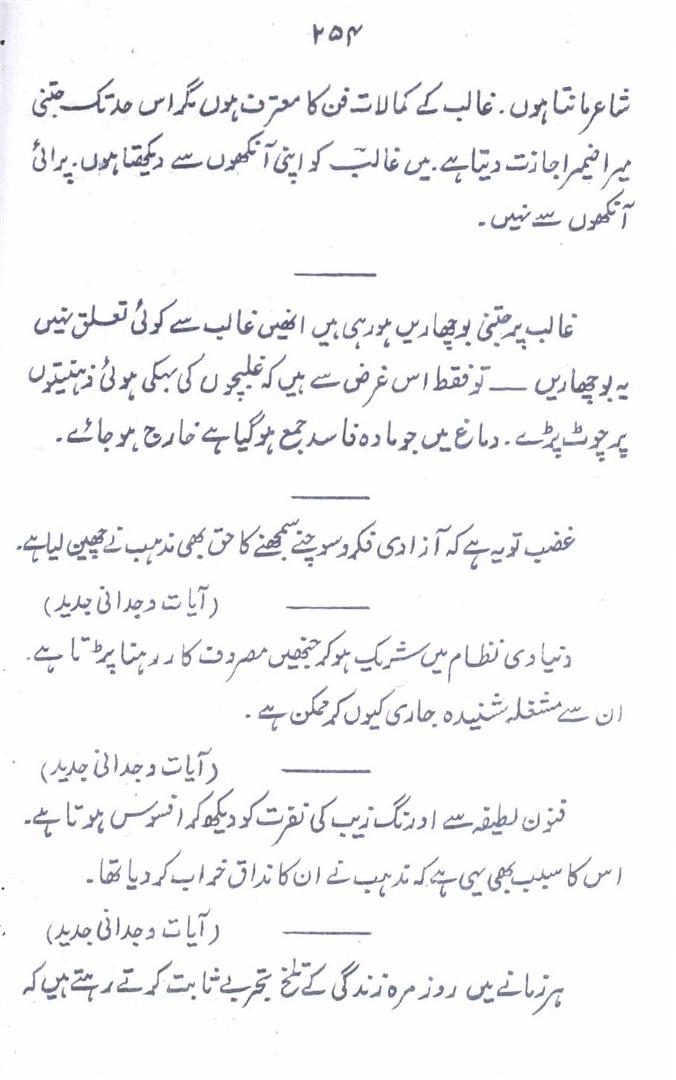 ۲۵۴
شاعر مانتا ہوں۔ غالب کے کمالات فن کا معترف ہوں مگر اس حد تک جتنی
میرا ضمیر اجازت دیتا ہے۔ میں غالبؔ کو اپنی آنکھوں سے دیکھتا ہوں۔ پرائی
آنکھوں سے نہیں۔
غالب پر جتنی بوچھاریں ہو رہی ہیں انھیں غالب سے کوئی تعلق نہیں
یہ بوچھاریں — تو فقط اس غرض سے ہیں کہ غلبچوں کی بہکی ہوئی ذہنیتوں
پر چوٹ پڑے۔ دماغ میں جو مادہ فاسد جمع ہوگیا ہے خارج ہو جائے۔
غضب تو یہ ہے کہ آزادی فکر و سوچنے سمجھنے کا حق بھی مذہب نے چھین لیا ہے۔
(آیات وجدانی جدید)
دنیاوی نظام میں شریک ہو کر جنھیں مصروف کار رہنا پڑتا ہے۔
ان سے مشغلہ شنیدہ جاری کیوں کر ممکن ہے۔
(آیات وجدانی جدید)
فنون لطیفہ سے اورنگ زیب کی نفرت کو دیکھ کر افسوس ہوتا ہے۔
اس کا سبب بھی یہی ہے کہ مذہب نے ان کا مذاق خراب کر دیا تھا۔
(آیات وجدانی جدید)
ہر زمانے میں روز مرہ زندگی کے تلخ تجربے ثابت کرتے رہتے ہیں کہ